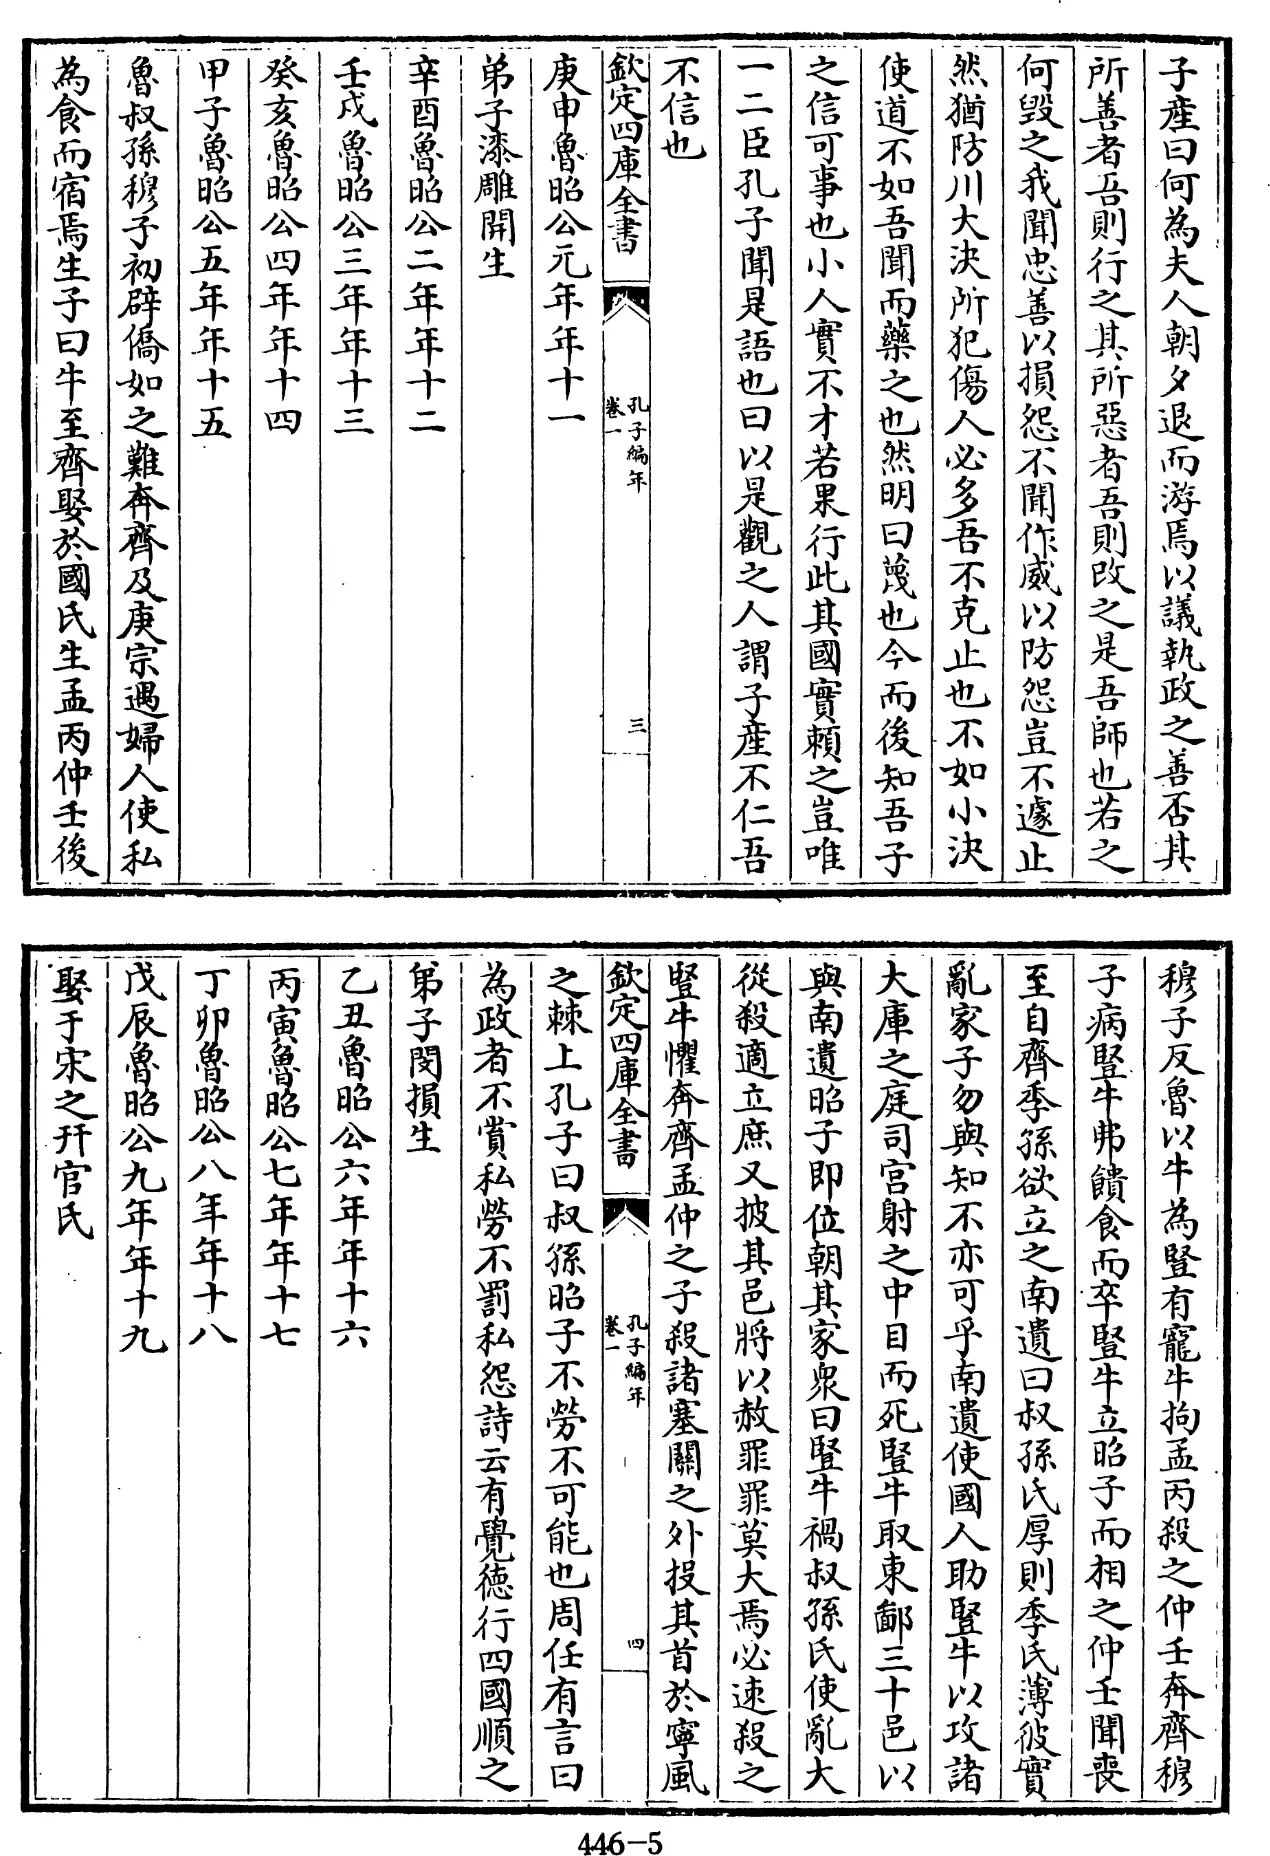 子產曰何為夫人朝夕退而游焉以議執政之善否其
所善者吾則行之其所惡者吾則改之是吾師也若之
何毀之我聞忠善以損怨不聞作威以防怨豈不遽止
然猶防川大決所犯傷人必多吾不克止也不如小決
使道不如吾聞而藥之也然明曰蔑也今而後知吾子
之信可事也小人實不才若果行此其國實賴之豈唯
一二臣孔子聞是語也曰以是觀之人謂子產不仁吾
不信也
欽定四庫全書
孔子編年
卷一
三
庚申魯昭公元年年十一
弟子漆雕開生
辛酉魯昭公二年年十二
壬戌魯昭公三年年十三
癸亥魯昭公四年年十四
甲子魯昭公五年年十五
魯叔孫穆子初辟僑如之難奔齊及庚宗遇婦人使私
為食而宿焉生子曰牛至齊娶於國氏生孟丙仲壬後
穆子反魯以牛為豎有寵牛拘孟丙殺之仲壬奔齊穆
子病豎牛弗饋食而卒豎牛立昭子而相之仲壬聞喪
至自齊季孫欲立之南遺曰叔孫氏厚則季氏薄彼實
亂家子勿與知不亦可乎南遺使國人助豎牛以攻諸
大庫之庭司宮射之中目而死豎牛取東鄙三十邑以
與南遺昭子即位朝其家眾曰豎牛禍叔孫氏使亂大
從殺適立庶又披其邑將以赦罪罪莫大焉必速殺之
豎牛懼奔齊孟仲之子殺諸塞關之外投其首於寧風
欽定四庫全書
孔子編年
卷一
四
之棘上孔子曰叔孫昭子不勞不可能也周任有言曰
為政者不賞私勞不罰私怨詩云有覺德行四國順之
弟子閔損生
乙丑魯昭公六年年十六
丙寅魯昭公七年年十七
丁卯魯昭公八年年十八
戊辰魯昭公九年年十九
娶于宋之幵官氏
446-5